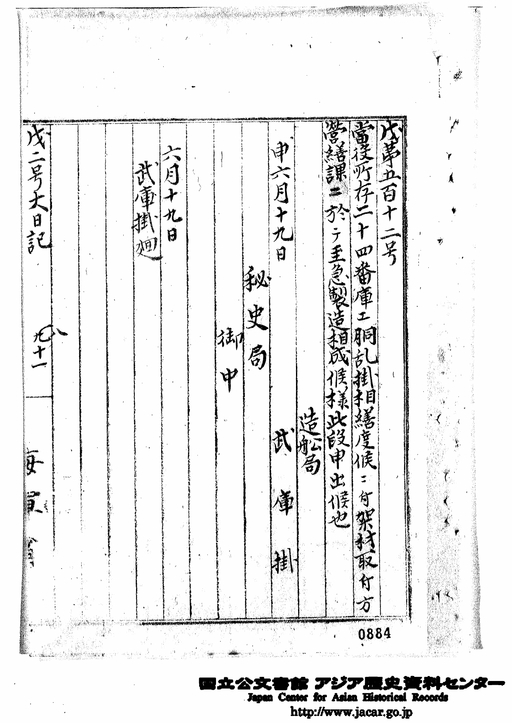 戊第五百十二号
當役所存二十四番庫エ胴乱掛相繕度候ニ付架材取付方
營繕課ニ於テ至急製造相成候様此段申出候也
造船局
武庫掛
申六月十九日
秘史局
御中
六月十九日
武庫掛廻
戊二号大日記
八
九十一
海軍省
0884
国立公文書館 アジア歴史資料センター
Japan Center for Asian Historical Records
http://www.jacar.go.jp